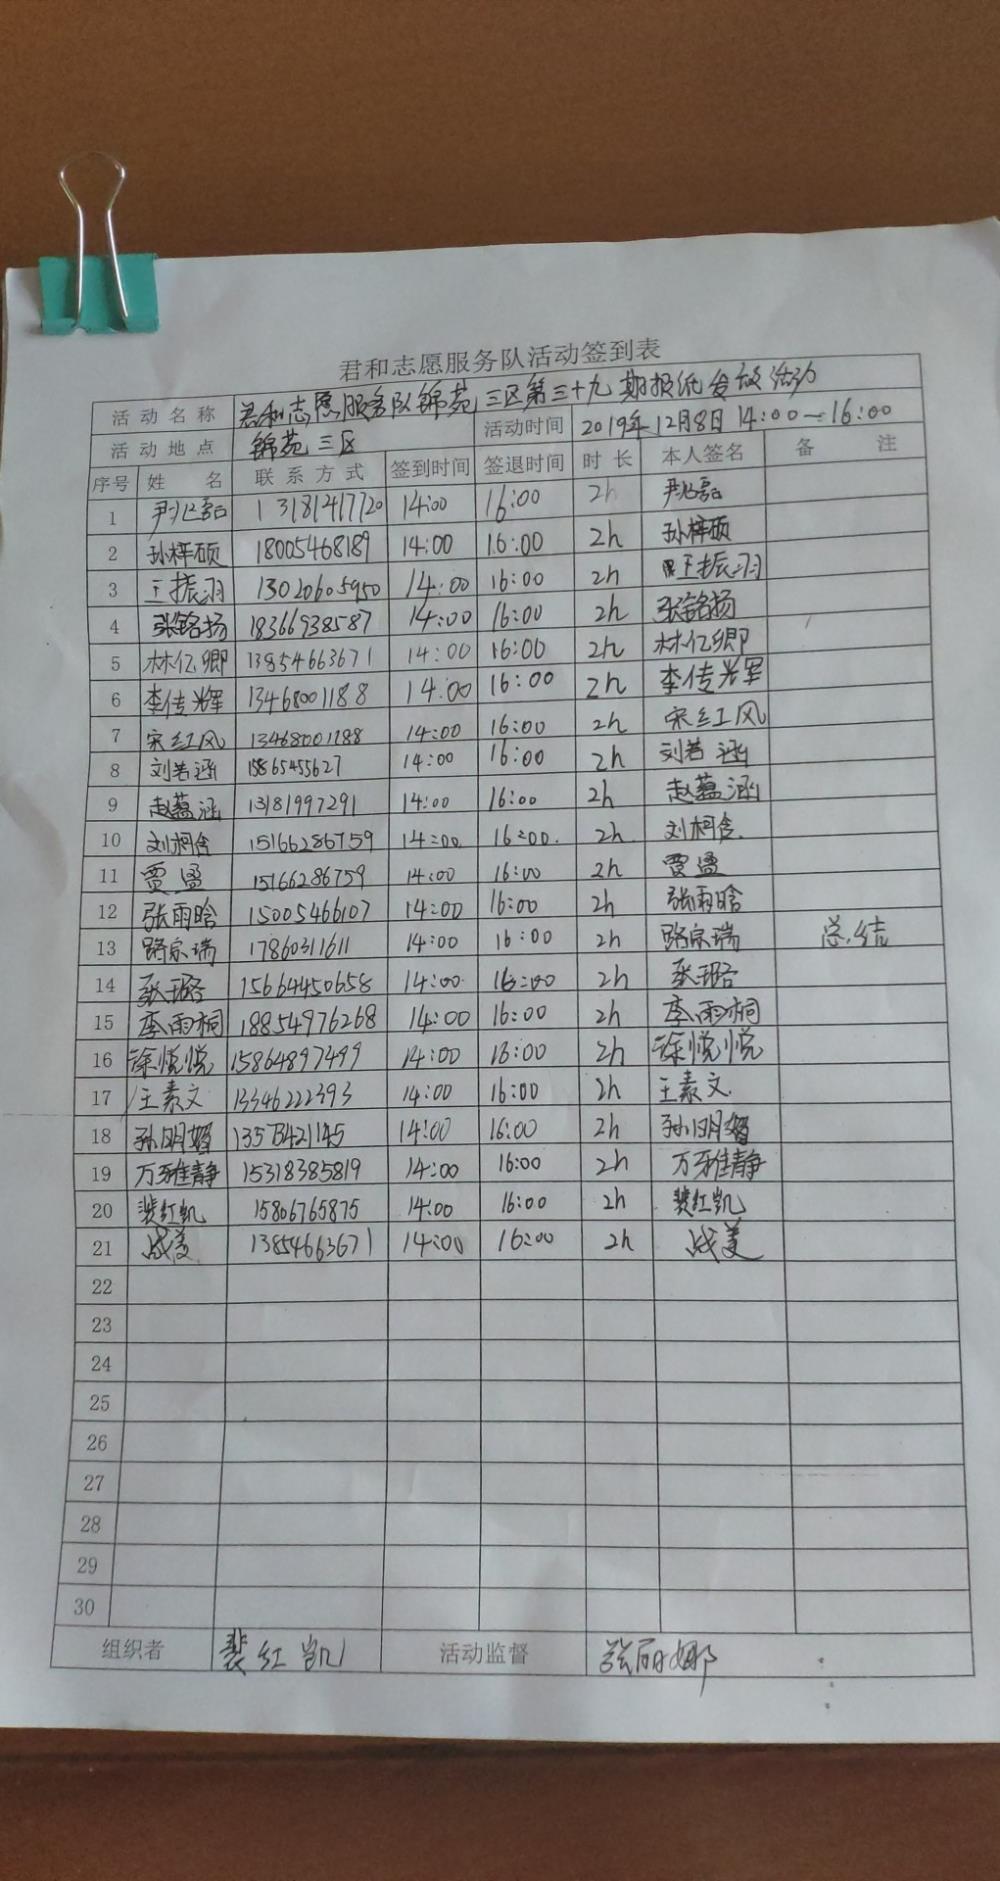 君和志愿服务队活动签到表
活动名称 君和志愿服务队锦苑三区第三十九期报纸发放活动
活动地点 锦苑三区 活动时间 2019年12月8日 14:00—16:00
序号 姓名 联系方式 签到时间 签退时间 时长 本人签名 备注
1 尹兆磊 131812417720 14:00 16:00 2h 尹兆磊
2 孙梓硕 18005468189 14:00 16:00 2h 孙梓硕
3 王振羽 13020605950 14:00 16:00 2h 王振羽
4 张铭扬 18366938587 14:00 16:00 2h 张铭扬
5 林亿卿 13854663671 14:00 16:00 2h 林亿卿
6 李传辉 13468001188 14:00 16:00 2h 李传辉
7 宋红风 13468001188 14:00 16:00 2h 宋红风
8 刘若涵 15865455627 14:00 16:00 2h 刘若涵
9 赵蕴涵 13181997291 14:00 16:00 2h 赵蕴涵
10 刘柯含 15166286759 14:00 16:00 2h 刘柯含
11 贾 15166286759 14:00 16:00 2h 贾
12 张雨晗 15005466107 14:00 16:00 2h 张雨晗
13 路宗瑞 17860311611 14:00 16:00 2h 路宗瑞 总结
14 张璐 15664450658 14:00 16:00 2h 张璐
15 李雨桐 18854976268 14:00 16:00 2h 李雨桐
16 徐悦悦 15864897499 14:00 16:00 2h 徐悦悦
17 王素文 13346222393 14:00 16:00 2h 王素文
18 孙明 14:00 16:00 2h 孙明
19 万雅静 15318385819 14:00 16:00 2h 万雅静
20 裴红凯 15806765875 14:00 16:00 2h 裴红凯
21 成美 13854663671 14:00 16:00 2h 成美
22
23
24
25
26
27
28
29
30
组织者 裴红凯 活动监督 张丽娜